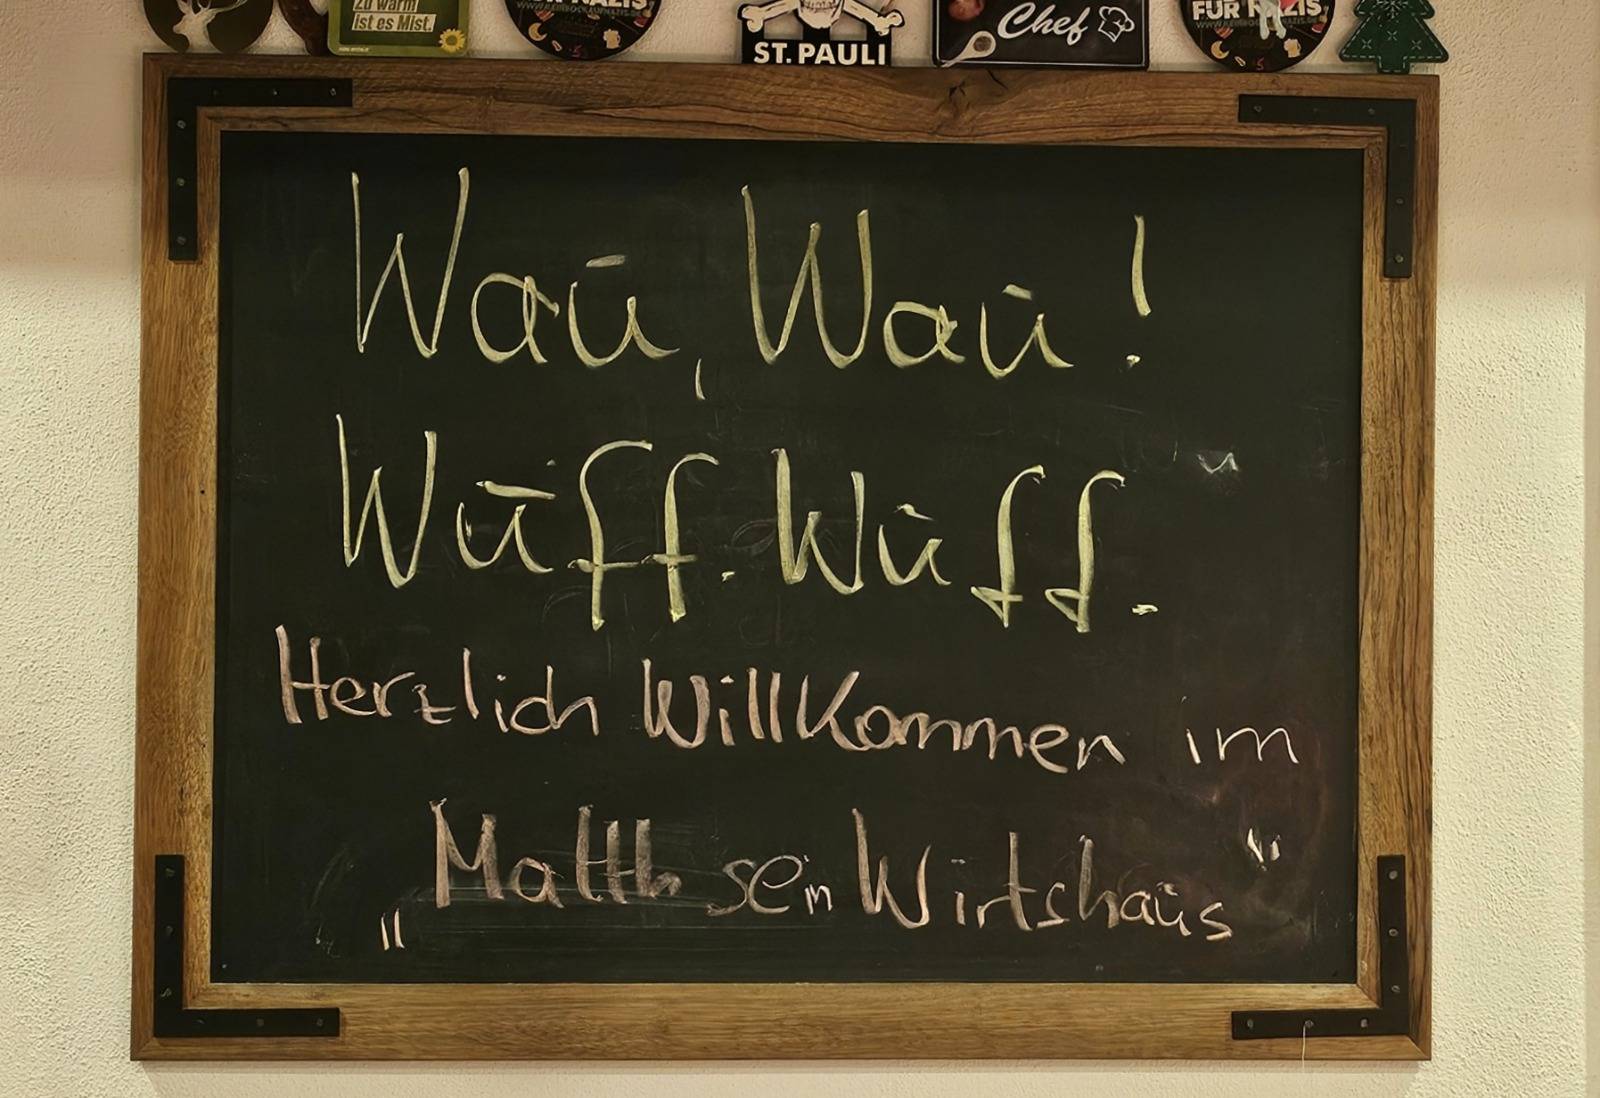 Zu warm
ist es Mist.
FÜR NAZIS
ST. PAULI
Chef
Wau, Wau!
Wuff. Wuff.
Herzlich Willkommen im
„Matth sein Wirtshaus"